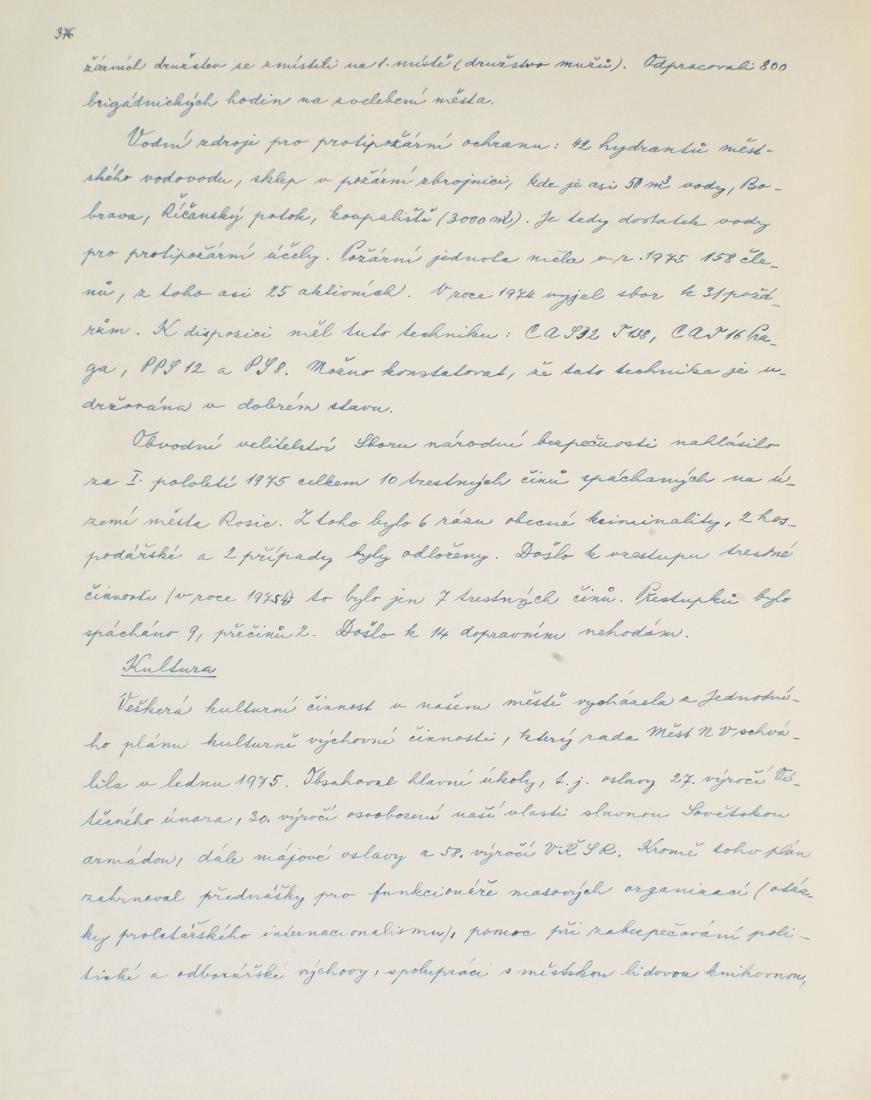 376
žárních družstev se umístili na 1. místě (družstvo mužů). Odpracovali 800
brigádnických hodin na zvelebení města.
Vodní zdroje pro protipožární ochranu: 42 hydrantů měst-
ského vodovodu, sklep v požární zbrojnici, kde je asi 50 m³ vody, Bo-
brava, Říčanský potok, koupaliště (3000 m³). Je tedy dostatek vody
pro protipožární účely. Požární jednota měla v r. 1975 158 čle-
nů, z toho asi 25 aktivních. V roce 1974 vyjel sbor k 31 požá-
rům. K disposici měl tuto techniku: CAS 32 T 138, CAT 16 Pra-
ga, PPS 12 a PS 8. Možno konstatovat, že tato technika je u-
držována v dobrém stavu.
Obvodní velitelství Sboru národní bezpečnosti nahlásilo
za I. pololetí 1975 celkem 10 trestných činů spáchaných na ú-
zemí města Rosic. Z toho bylo 6 rázu obecné kriminality, 2 hos-
podářské a 2 případy byly odloženy. Došlo k vzestupu trestné
činnosti (v roce 1974) to bylo jen 7 trestných činů. Přestupků bylo
spácháno 9, přečinů 2. Došlo k 14 dopravním nehodám.
Kultura
Veškerá kulturní činnost v našem městě vycházela z Jednotné-
ho plánu kulturně výchovné činnosti, který rada Měst NV schvá-
lila v lednu 1975. Obsahoval hlavní úkoly, t. j. oslavy 27. výročí Ví-
tězného února, 30. výročí osvobození naší vlasti slavnou Sovětskou
armádou, dále májové oslavy a 58. výročí VŘSR. Kromě toho plán
zahrnoval přednášky pro funkcionáře masových organizací (otáz-
ky proletářského internacionalismu), pomoc při zabezpečování poli-
tické a odborářské výchovy, spolupráci s městskou lidovou knihovnou,